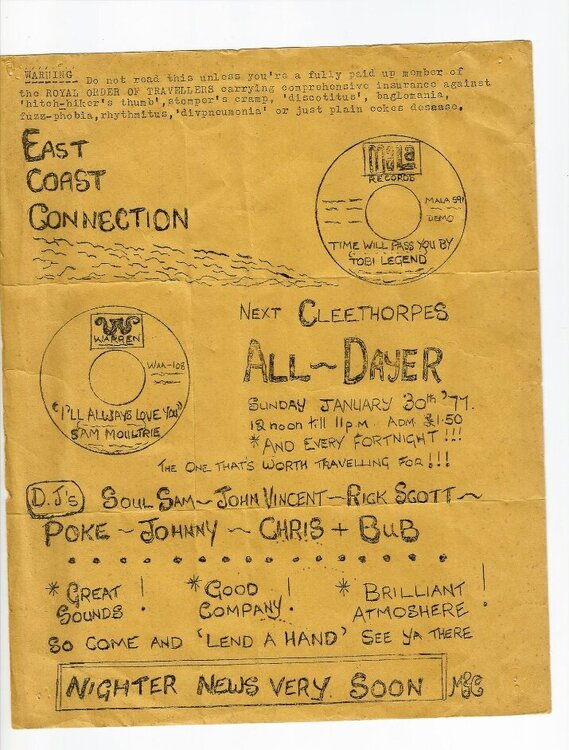 WARNING Do not read this unless you're a fully paid up member of
the ROYAL ORDER OF TRAVELLERS carrying comprehensive insurance against
'hitch-hiker's thumb', stomper's cramp, 'discotitus', baglomania,
fuzz-phobia, rhythmitus, 'divpneumonia' or just plain cokes desease.
EAST
COAST
CONNECTION
MALA
RECORDS
MALA 591
DEMO
TIME WILL PASS YOU BY
TOBI LEGEND
W
WARREN
WAA-108
"I'LL ALWAYS LOVE YOU"
SAM MOULTRIE
NEXT CLEETHORPES
ALL~DAYER
SUNDAY JANUARY 30th '77.
12 noon till 11 p.m. ADM £1.50
*AND EVERY FORTNIGHT!!!
THE ONE THAT'S WORTH TRAVELLING FOR!!!
D.J's SOUL SAM~JOHN VINCENT~RICK SCOTT~
POKE ~ JOHNNY ~ CHRIS + BUB
* GREAT SOUNDS!
* GOOD COMPANY!
* BRILLIANT ATMOSHERE!
SO COME AND 'LEND A HAND' SEE YA THERE
NIGHTER NEWS VERY SOON